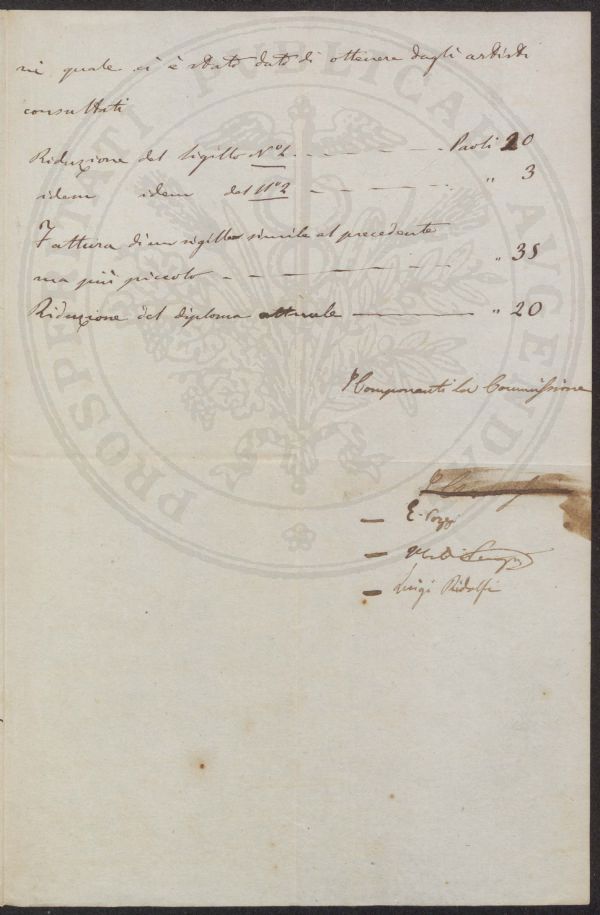 ni quale ci è stato dato di ottenere dagli artisti
consultati
Riduzione del Sigillo N.° 1. Paoli 20
idem idem del N.° 2 " 3
Fattura di un sigillo simile al precedente
ma più piccolo " 35
Riduzione del diploma attuale " 20
I Componenti la Commissione
E. Pozzi
Luigi Ridolfi
PROSPERITATI PUBLICAE AUGENDAE